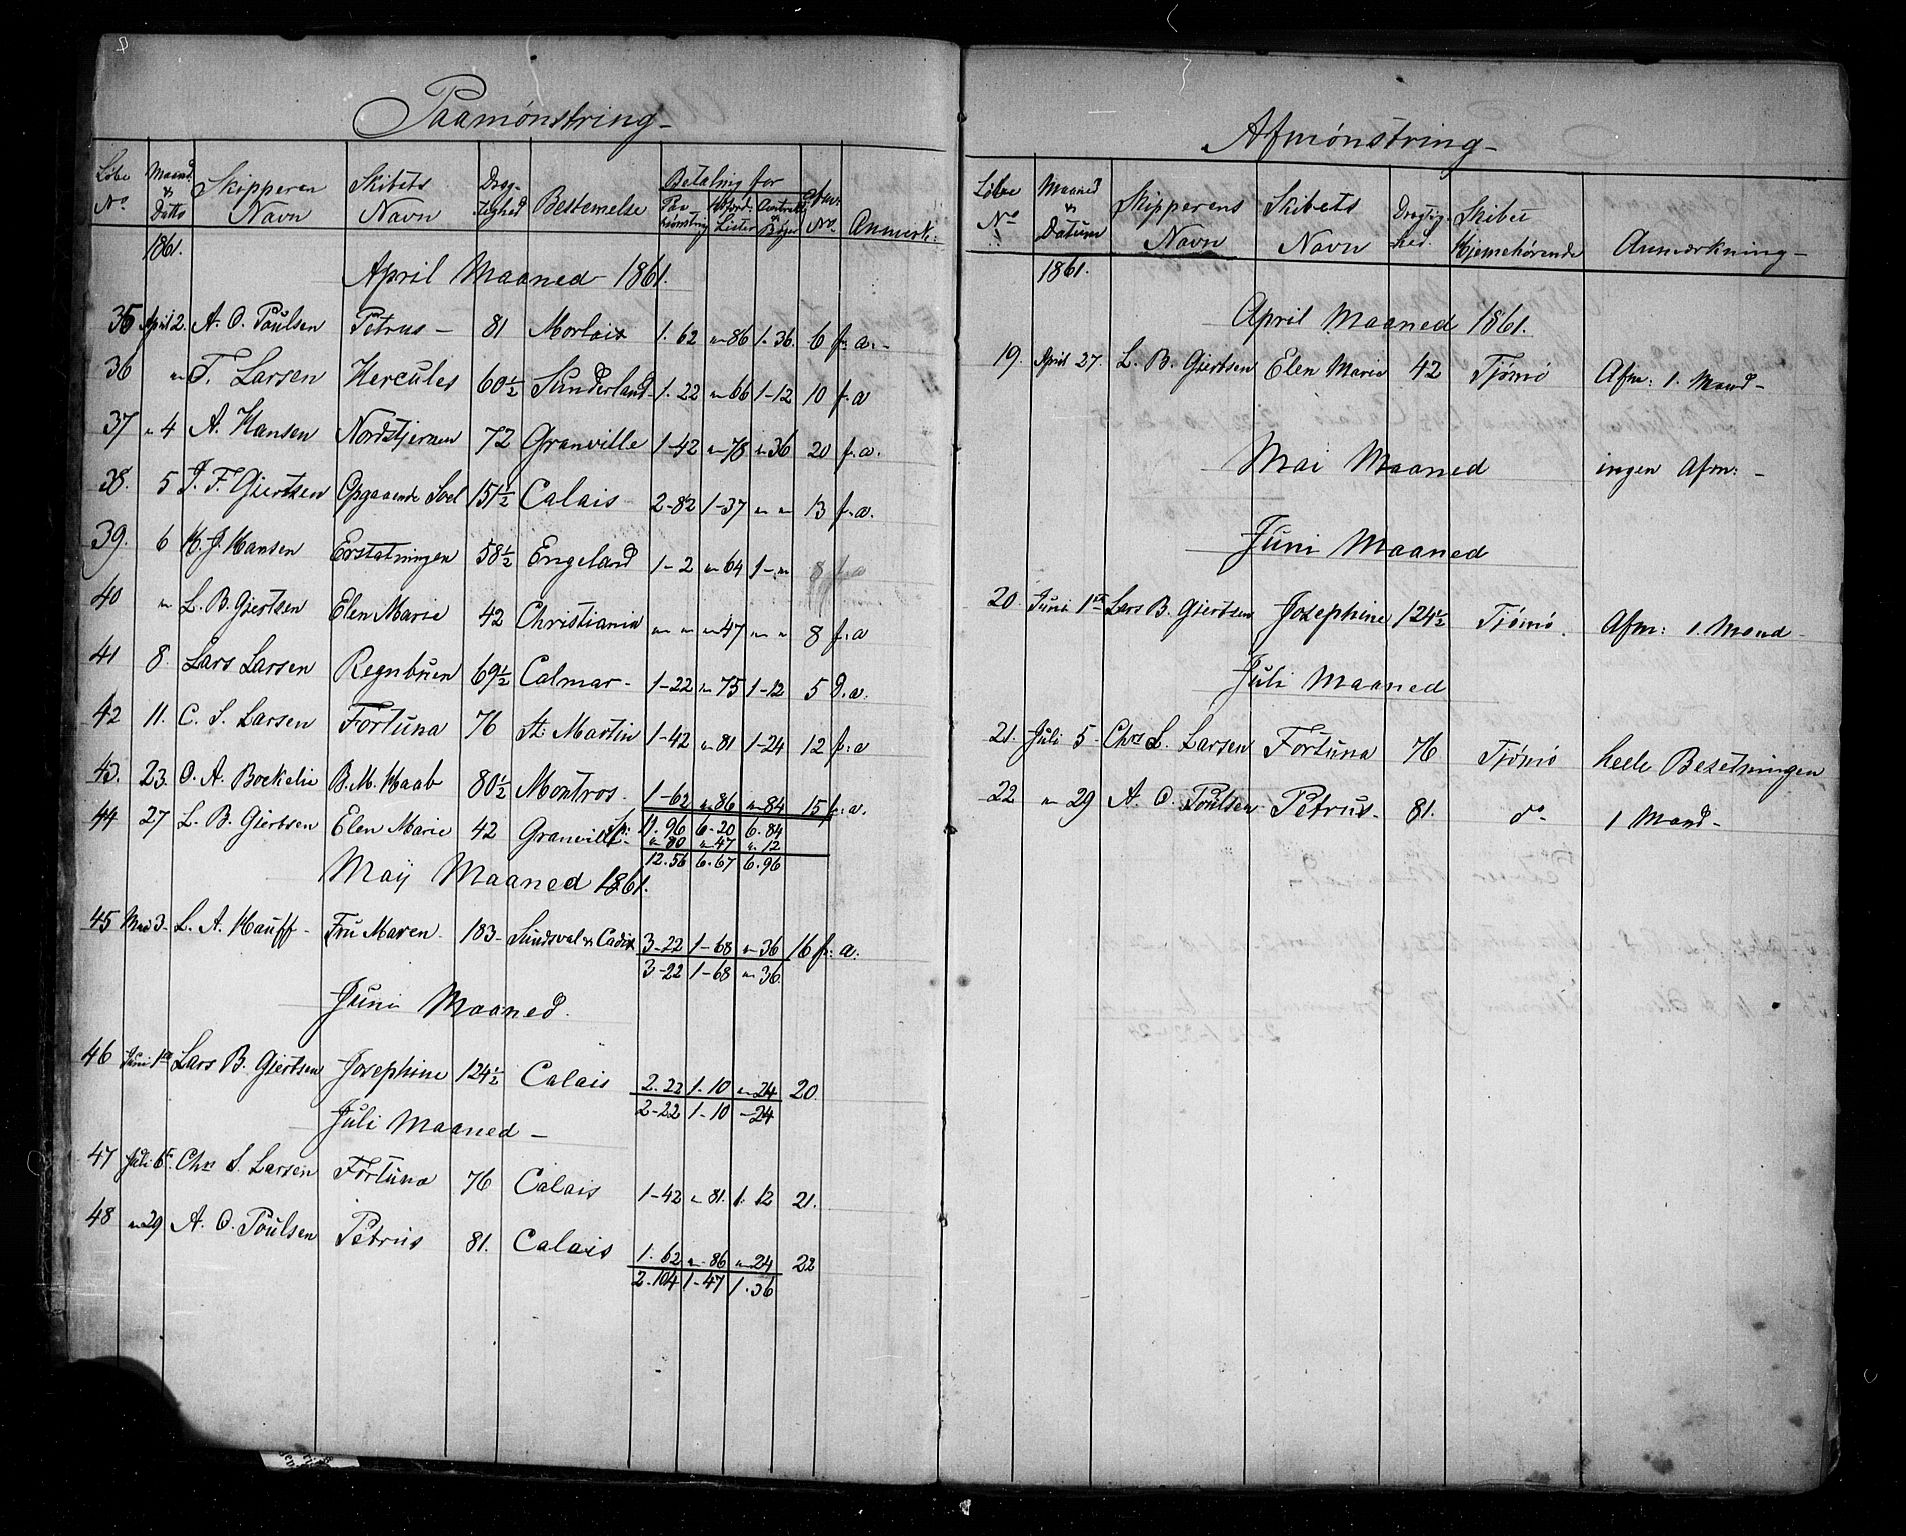 Paamønstring-
Løbe No. Maand & Datto Skipperen Navn Skibets Navn Dræg-tighed Bestemelse Betaling for Paa mønstring Lister No. Anmærk:
1861.
April Maaned 1861.
35 April 2. A. O. Poulsen Petrus - 81 Morlaix 1. 62 „-86 1. 36. 6 f. a. -
36 „ T. Larsen Hercules 60½ Sunderland 1. 22 „-66 1-12 10 f. a
37 „ 4 A. Hansen Nordstjernen 72 Granville 1-42 „-78 „-36 20 f. a.
38. 5 J. F. Gjertsen Opgaaende Soel 151½ Calais 2-82 1-37 „ „ 13 f. a.
39. 6 H. J. Hansen Erstatningen 58½ Engeland 1-2 „-64 1-„ 8 f a
40 „ L. B. Gjertsen Elen Marie 42 Christiania „ „ „-47 „ „ 8 f. a
41 8. Lars Larsen Regnbuen 69½ Calmar - 1-22 „-75 1-12 5 d. a.
42 11. C. L. Larsen Fortuna 76 St. Martin 1-42 „-81 1-24 12 f. a
43. 23. O. A. Boekelie B. M. Kaab 80½ Montros. 1-62 „-86 „-84 15 f. a.
44 27 L. B. Gjertsen Elen Marie 42 Granville 11. 96 6-20 6. 84
„ 80 „-47 „. 12
12. 56 6. 67 6. 96
Maij Maaned 1861.
45 Mai 3- L. A. Hauff - Fru Maren. 183- Sundsval & Cadix 3-22 1-68 „-36 16 f. a.
3-22 1-68 „-36.
Juni Maaned.
46 Juni 1ste Lars B. Gjertsen Josephine 124½ Calais 2. 22 1. 10 „-24 20
2-22 1-10 -24
Juli Maaned -
47 Juli 6. Chr. L. Larsen Fortuna 76 Calais 1-42 „ 81. 1. 12 21.
48 „ 29 A. O. Poulsen Petrus 81. Calais 1. 62 „-86 „-24 22
2. 104 1-47 1. 36
Afmønstring-
Løbe No Maaned & Datum Skipperens Navn Skibets Navn Drægtig-hed. Skibet Hjemmehørende Anmærkning-
1861.
April Maaned 1861.
19. April 27. L. B. Gjertsen Elen Marie 42 Tjømø Afm: 1. Mand-
Mai Maaned ingen Afm: -
Juni Maaned
20. Juni 1ste Lars B. Gjertsen Josephine 124½ Tjømø. Afm: 1. Mand-
Juli Maaned
21. Juli 5- Chrs L. Larsen Fortuna 76 Tjømø heele Besetningen
22 „ 29 A. O. Poulsen. Petrus. 81. do 1 Mand-